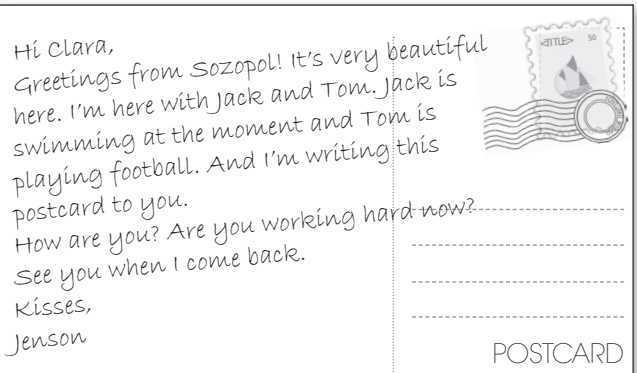 Hi Clara,
Greetings from Sozopol! It's very beautiful
here. I'm here with Jack and Tom. Jack is
swimming at the moment and Tom is
playing football. And I'm writing this
postcard to you.
How are you? Are you working hard now?
See you when I come back.
Kisses,
Jenson
<TITLE> 50
POSTCARD